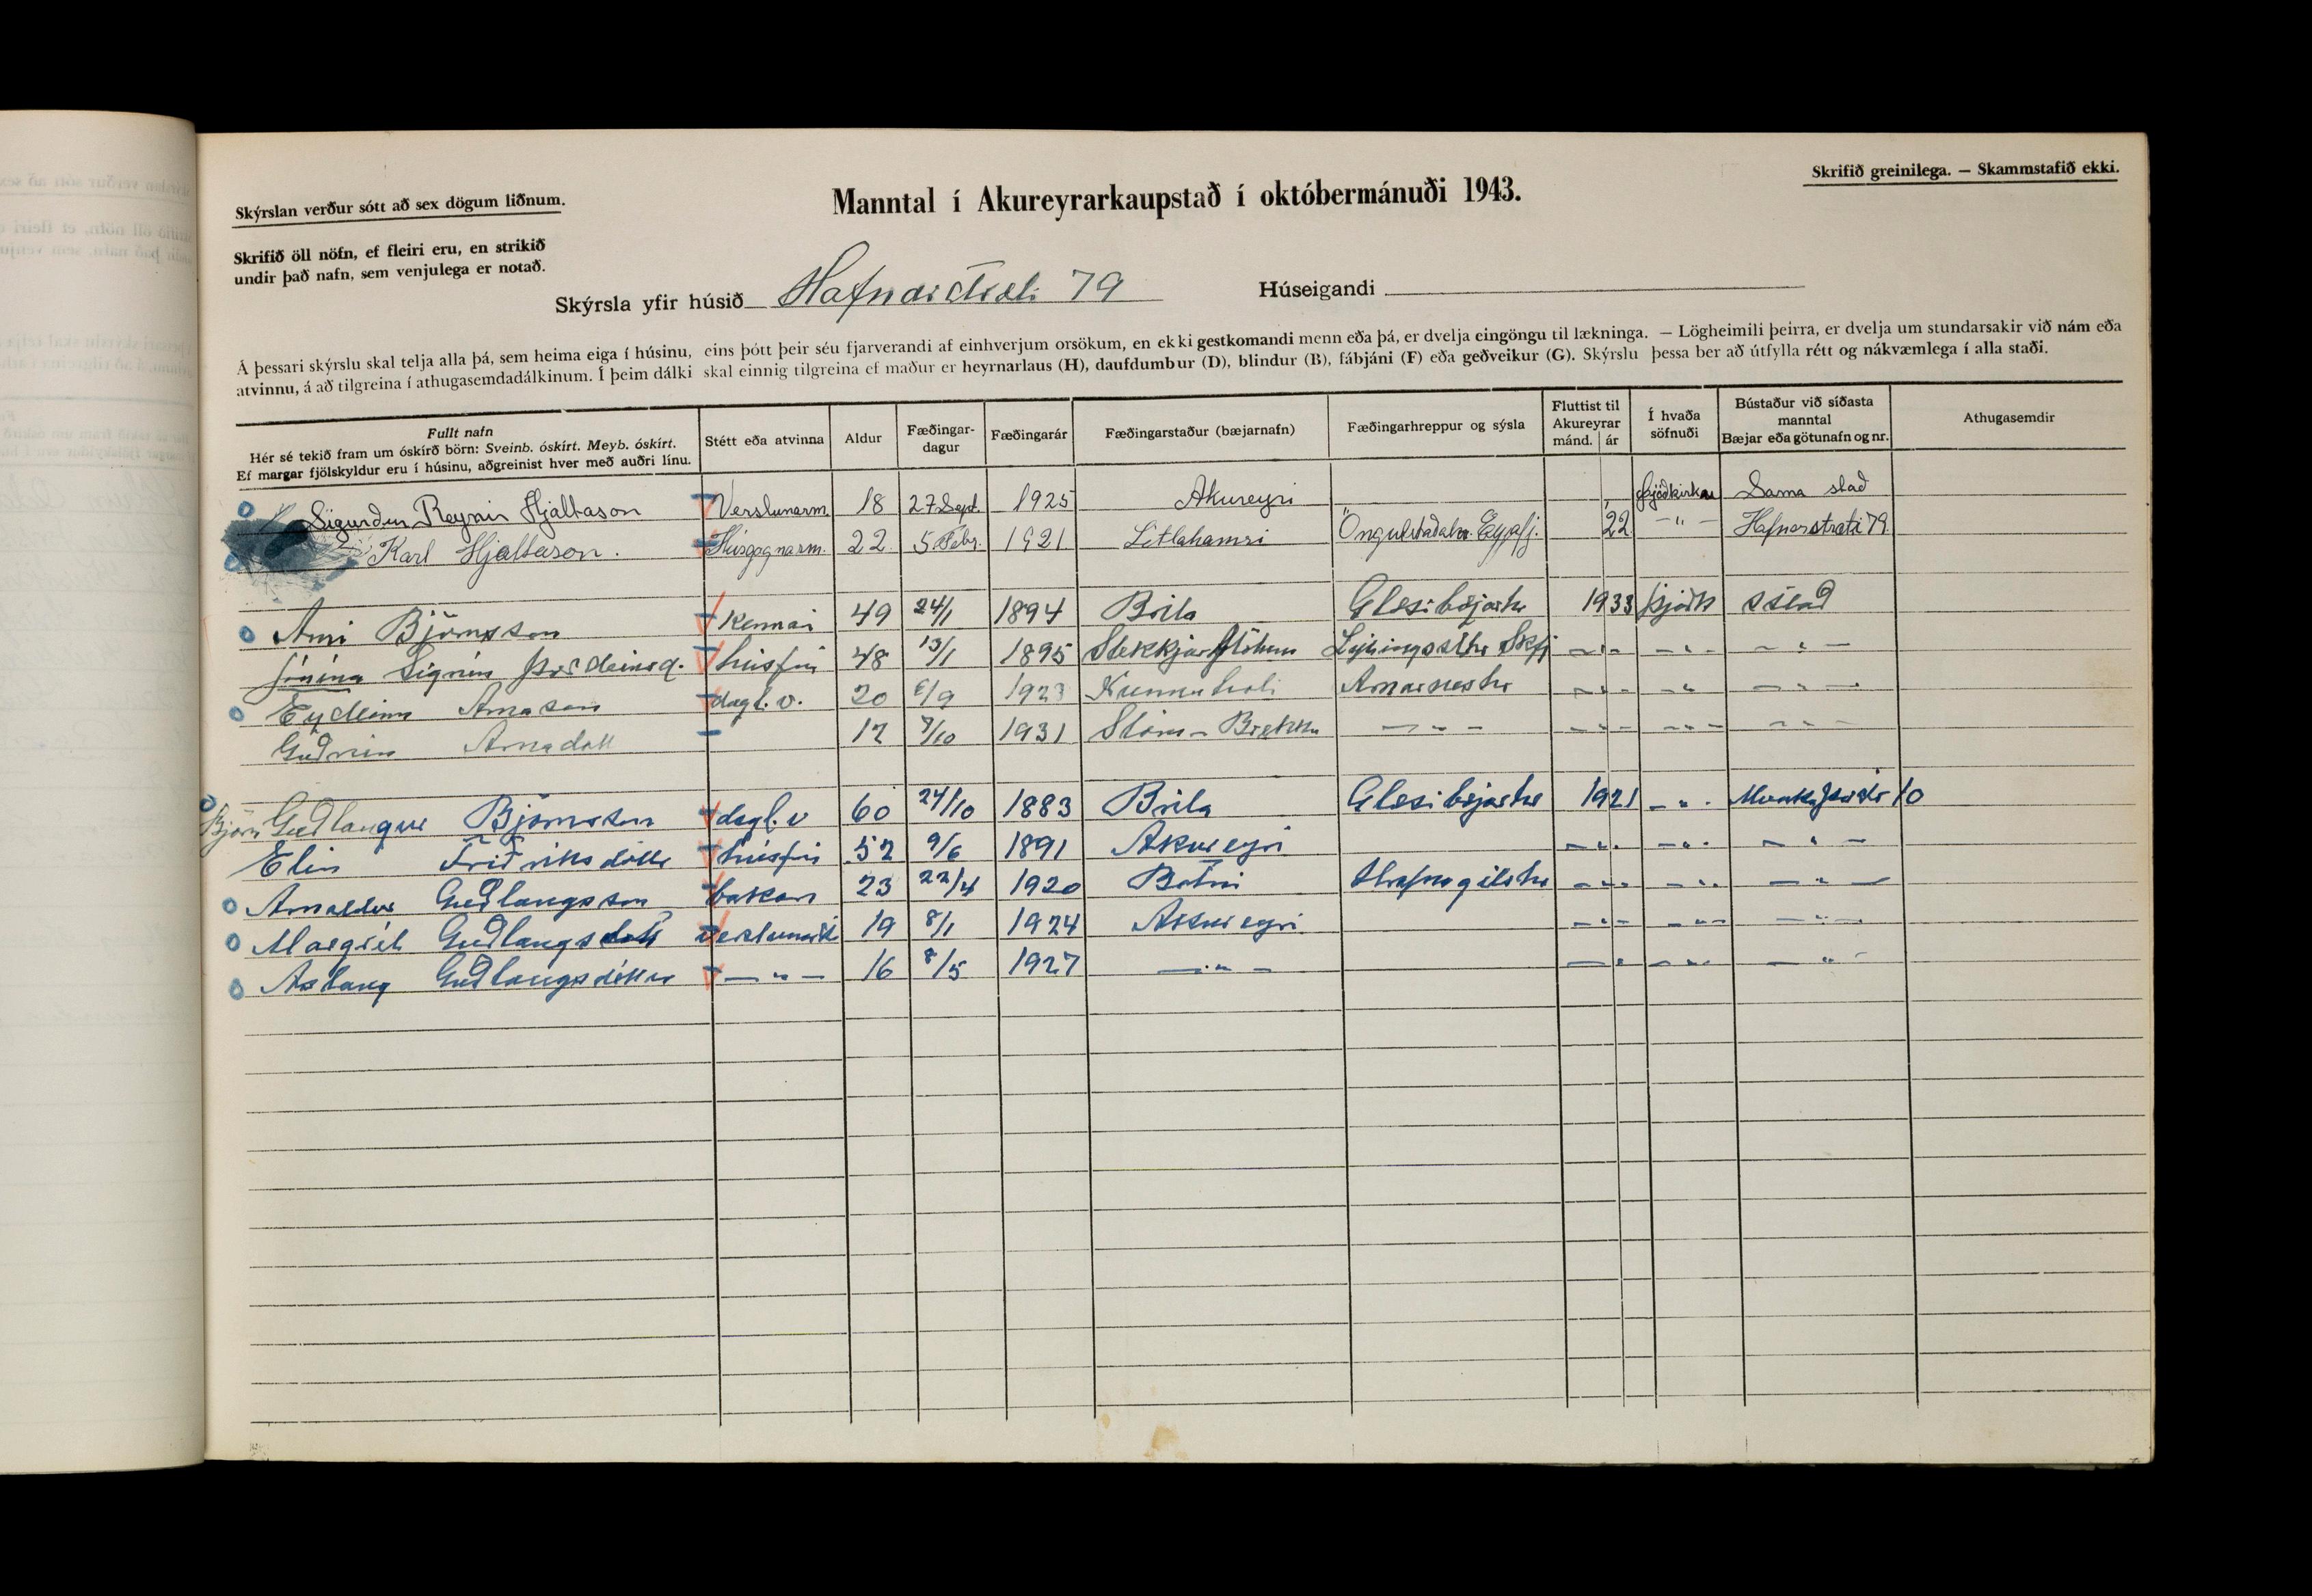 Skýrslan verður sótt að sex dögum liðnum.
Manntal í Akureyrarkaupstað í októbermánuði 1943.
Skrifið greinilega. — Skammstafið ekki.
Skrifið öll nöfn, ef fleiri eru, en strikið
undir það nafn, sem venjulega er notað.
Skýrsla yfir húsið Hafnarstræti 79 Húseigandi
Á þessari skýrslu skal telja alla þá, sem heima eiga í húsinu, eins þótt þeir séu fjarverandi af einhverjum orsökum, en ekki gestkomandi menn eða þá, er dvelja eingöngu til lækninga. — Lögheimili þeirra, er dvelja um stundarsakir við nám eða
atvinnu, á að tilgreina í athugasemdadálkinum. Í þeim dálki skal einnig tilgreina ef maður er heyrnarlaus (H), daufdumbur (D), blindur (B), fábjáni (F) eða geðveikur (G). Skýrslu þessa ber að útfylla rétt og nákvæmlega í alla staði.
Fullt nafn
Hér sé tekið fram um óskírð börn: Sveinb. óskírt. Meyb. óskírt.
Ef margar fjölskyldur eru í húsinu, aðgreinist hver með auðri línu.
Stétt eða atvinna
Aldur
Fæðingar-
dagur
Fæðingarár
Fæðingarstaður (bæjarnafn)
Fæðingarhreppur og sýsla
Fluttist til
Akureyrar
mánd. ár
Í hvaða
söfnuði
Bústaður við síðasta
manntal
Bæjar eða götunafn og nr.
Athugasemdir
Sigurður Reynir Hjaltason Verslunarm. 18 27 Sept. 1925 Akureyri Þjóðkirkju Sama stað
Karl Hjaltason. Húsgagnasm. 22 5 Febr. 1921 Litlahamri Öngulstaðahr. Eyjafj. 22 — " — Hafnarstræti 79
Árni Björnsson kennari 49 24/1 1894 Brila Glæsibæjarhr 1933 Þjóðk s stað
Jónína Sigrún Þorsteinsd. húsfrú 48 13/1 1895 Stekkjarflötum Skfj — " — — " — — " —
Eysteinn Árnason dagl. v. 20 /9 1923 Arnarneshr — " — — " — — " —
Guðrún Árnadótt 12 /10 1931 Stóru-Brekku — " — — " — — " — — " —
Björn Guðlaugur Björnsson dagl. v 60 24/10 1883 Brila Glæsibæjarhr 1921 — " — Munkaþverárstr 10
Elín Friðriksdóttir húsfrú 52 9/6 1891 Akureyri — " — — " — — " —
Arnaldur Guðlaugsson bakari 23 22/4 1920 Botni Hrafnagilshr — " — — " — — " —
Margrét Guðlaugsdótt verslunarst 19 8/1 1924 Akureyri — " — — " — — " —
Áslaug Guðlaugsdóttir — " — 16 8/5 1927 — " — — " — — " — — " —